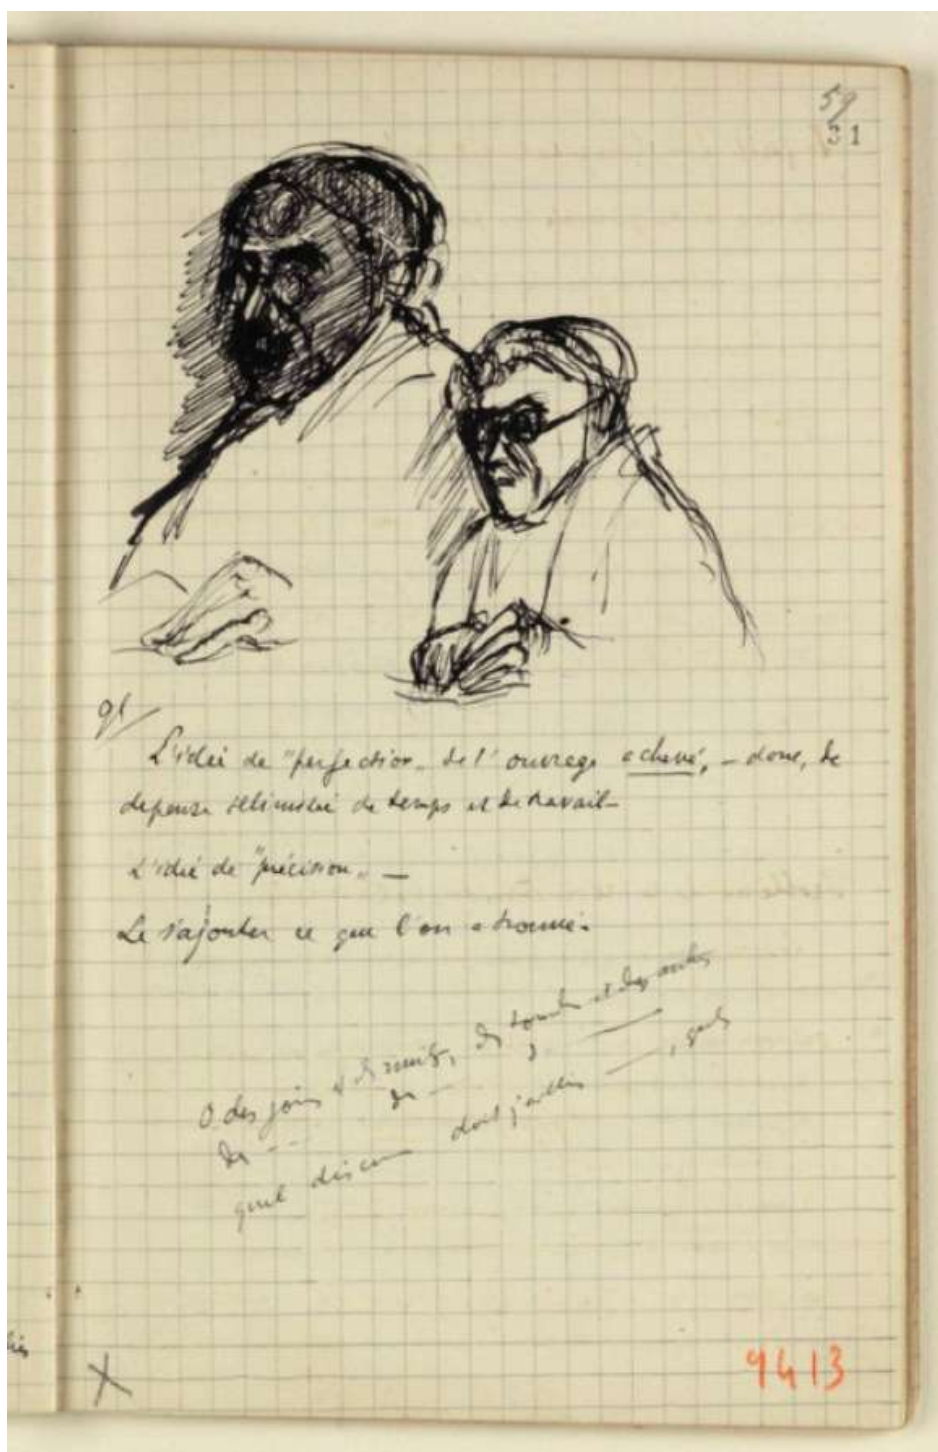 59
31
gl
L'idée de "perfection" de l'ouvrage achevé, – donc, de
dépense illimitée de temps et de travail –
L'idée de "précision" –
Le s'ajouter ce que l'on a trouvé.
O des jours et des nuits, des et des
des – des –
quel dont –,
X
9413